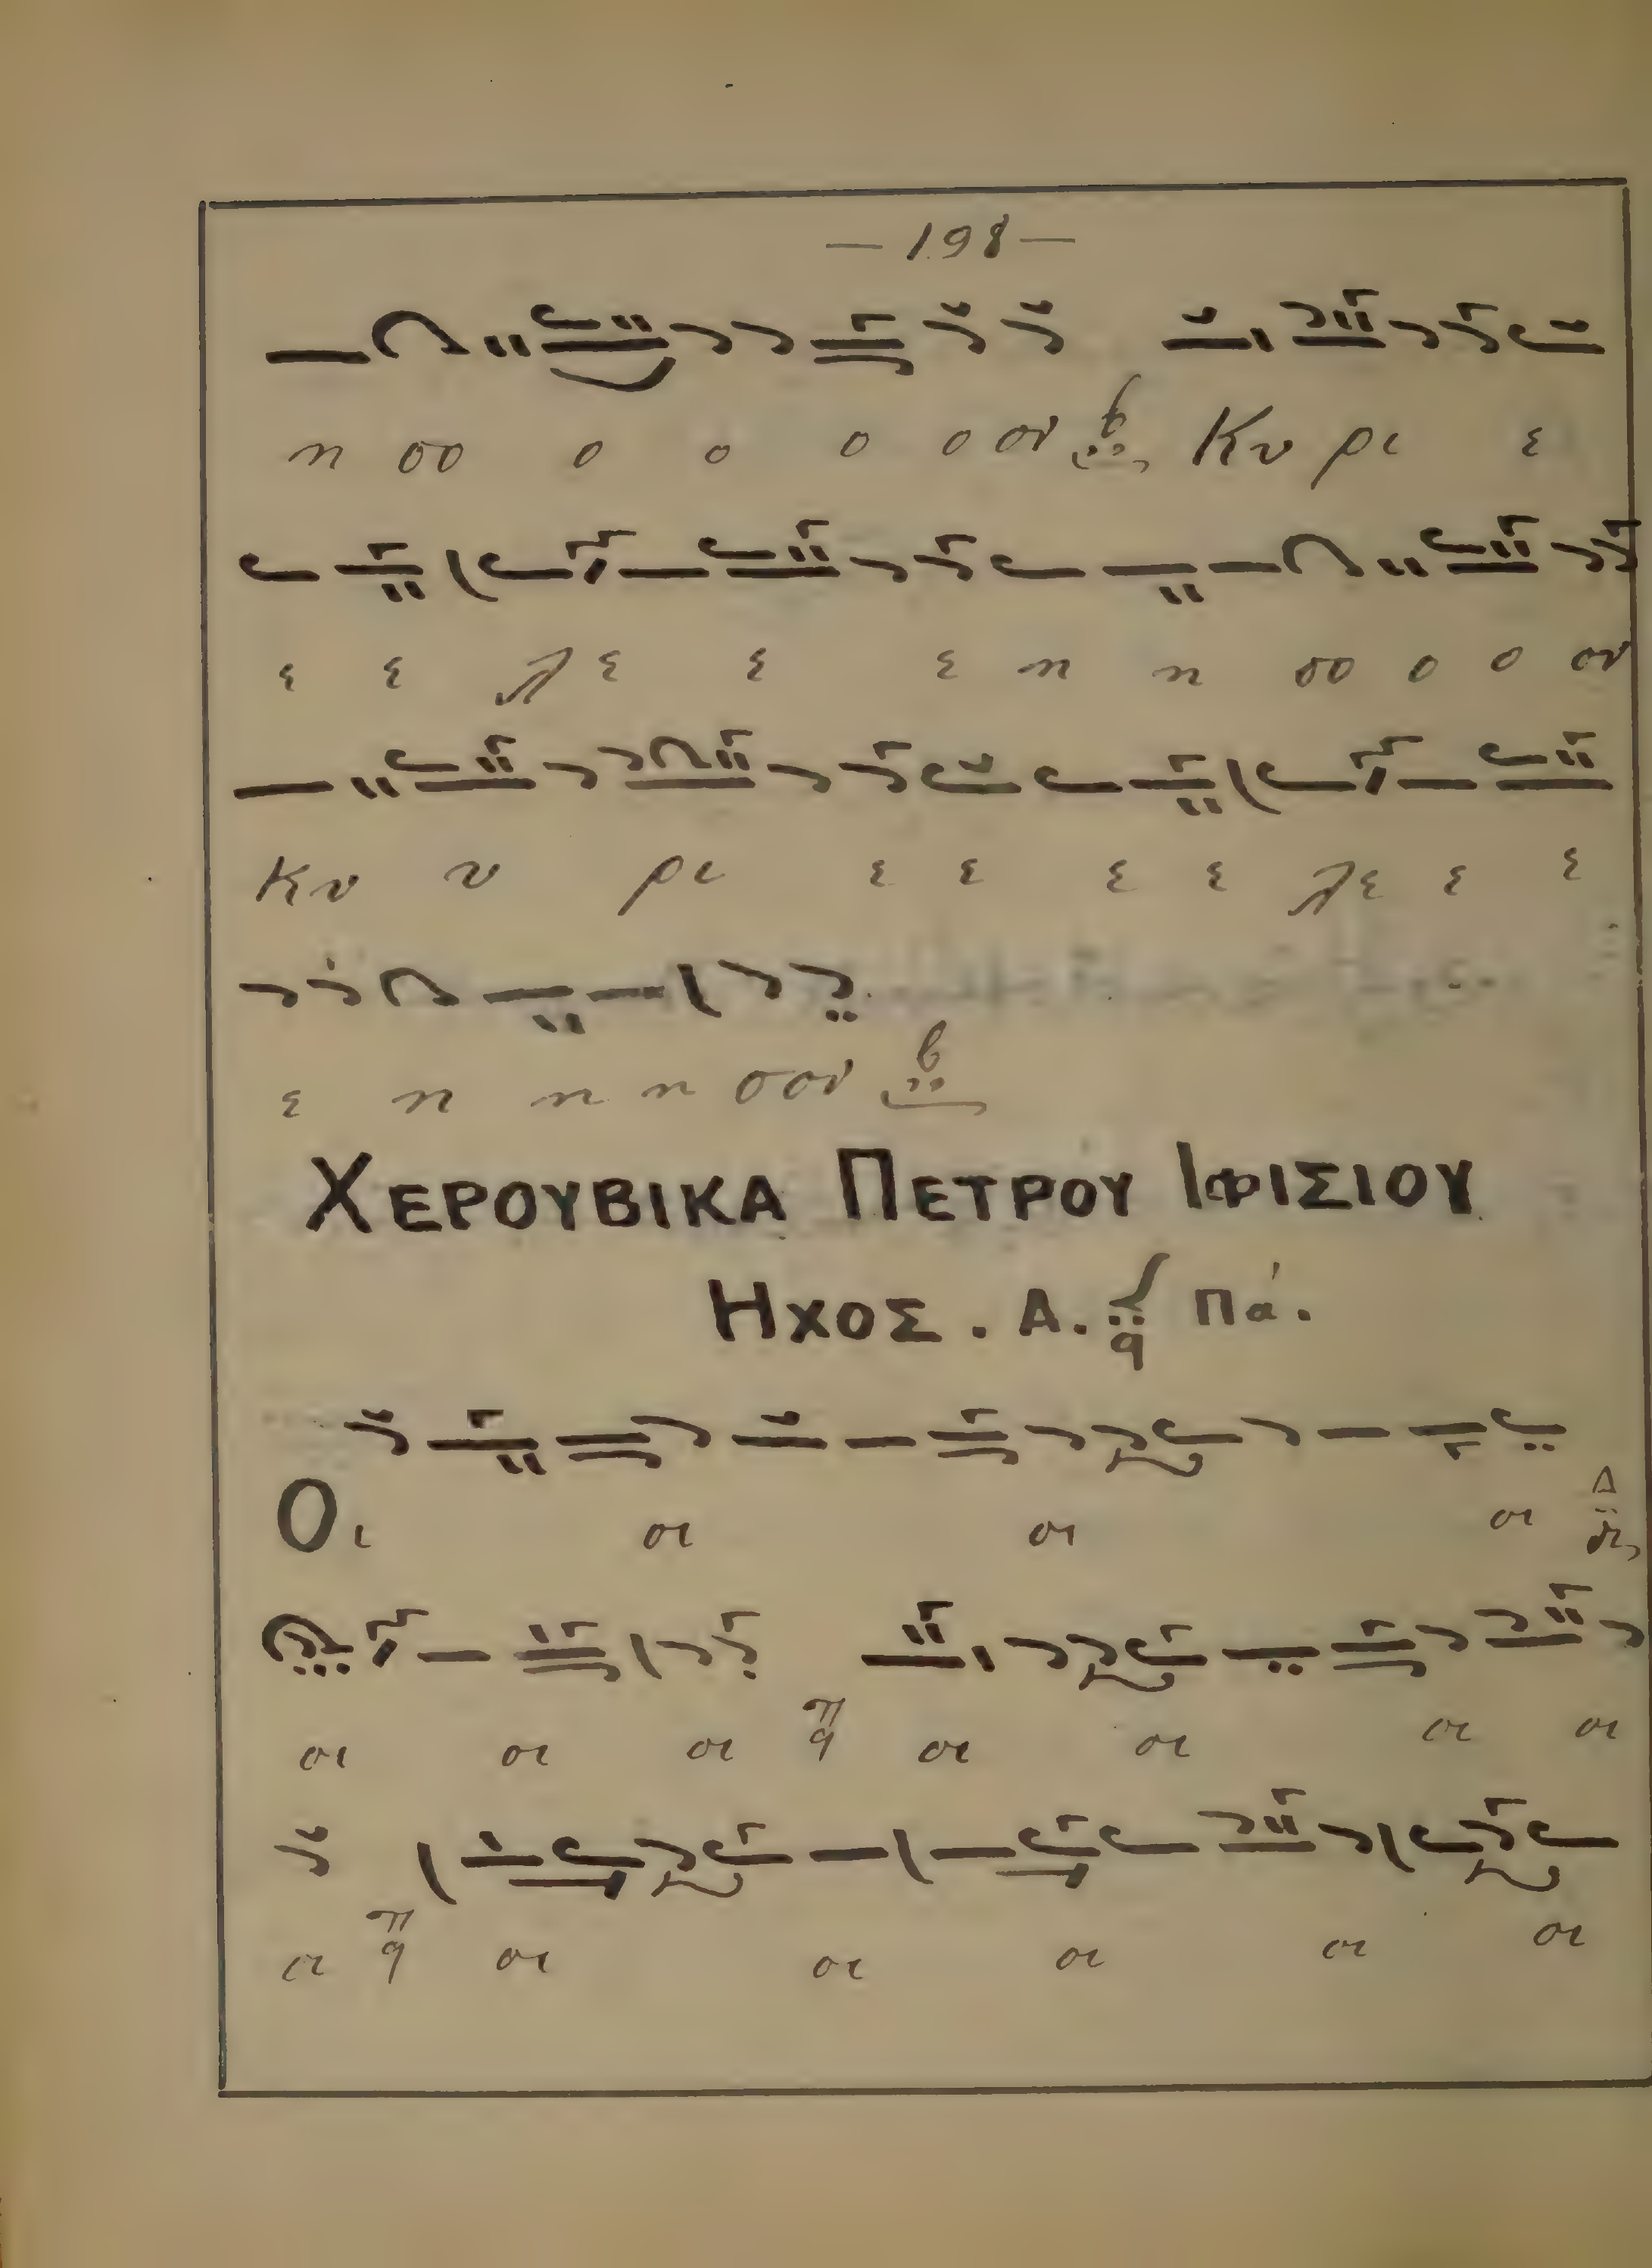 — 198 —
η σο ο ο ο ο ον β Κυ ρι ε
ε ε λε ε ε ε η η σο ο ο ον
Κυ υ ρι ε ε ε ε λε ε ε
ε η η η σον β
ΧΕΡΟΥΒΙΚΑ ΠΕΤΡΟΥ ΙΦΙΣΙΟΥ
ΗΧΟΣ . Α. q Πά.
Οι οι οι οι Δ
οι οι οι π q οι οι οι οι
οι π q οι οι οι οι οι